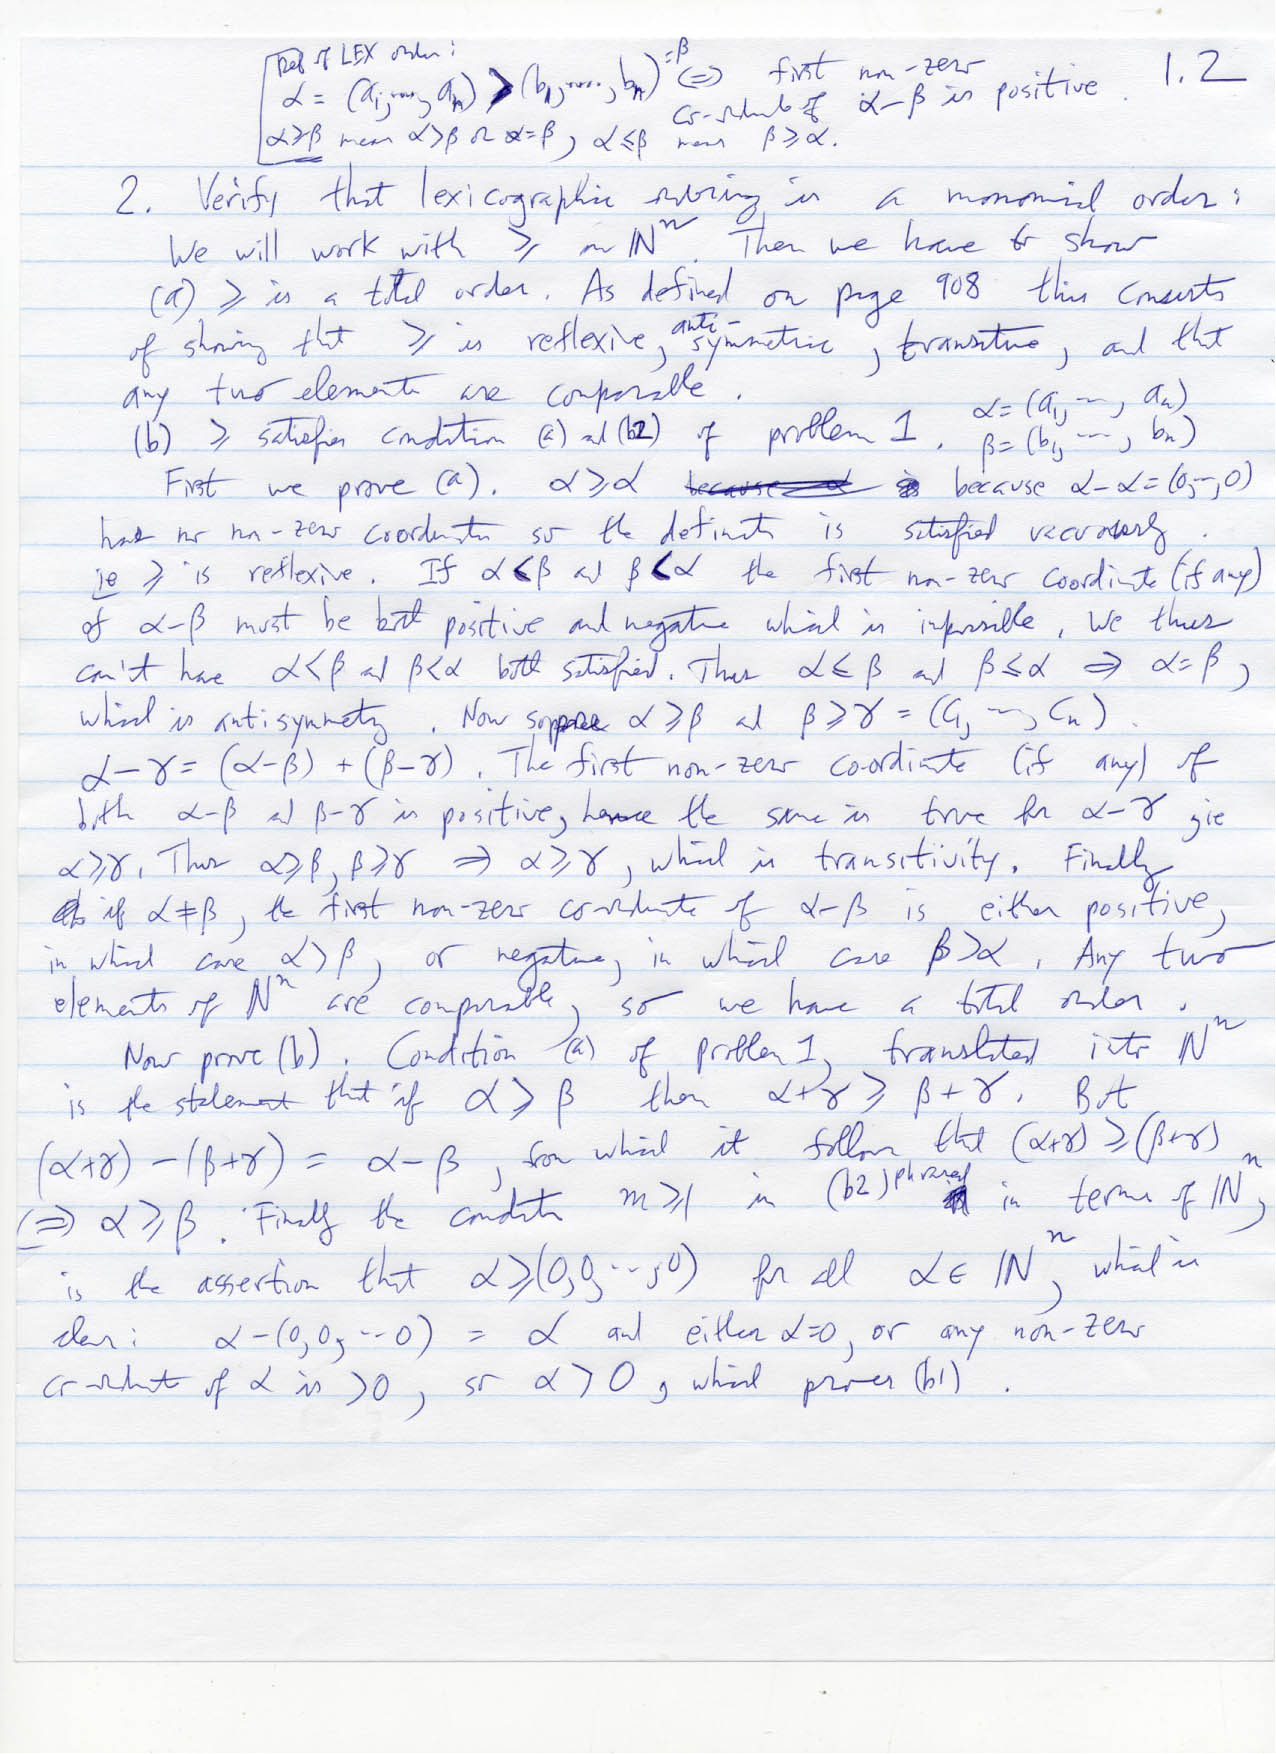 1.2
Def of LEX order:
α = (a1,...,an) > (b1,...,bn) = β ⟺ first non-zero
co-ordinate of α-β is positive.
α≥β means α>β or α=β, α≤β means β≥α.
2. Verify that lexicographic ordering is a monomial order:
We will work with ≥ on ℕⁿ. Then we have to show
(a) ≥ is a total order. As defined on page 908 this consists
of showing that ≥ is reflexive, anti-symmetric, transitive, and that
any two elements are comparable.
α=(a1,---, an)
(b) ≥ satisfies condition (a) and (b2) of problem 1. β=(b1,---, bn)
First we prove (a). α≥α because α-α=(0,--,0)
has no non-zero coordinates so the definition is satisfied vacuously.
ie ≥ is reflexive. If α<β and β<α the first non-zero coordinate (if any)
of α-β must be both positive and negative which is impossible. We thus
can't have α<β and β<α both satisfied. Thus α≤β and β≤α ⇒ α=β,
which is antisymmetry. Now suppose α≥β and β≥γ = (c1, --, cn).
α-γ = (α-β) + (β-γ). The first non-zero co-ordinate (if any) of
both α-β and β-γ is positive, hence the same is true for α-γ, ie
α≥γ. Thus α≥β, β≥γ ⇒ α≥γ, which is transitivity. Finally
if α≠β, the first non-zero co-ordinate of α-β is either positive,
in which case α>β, or negative, in which case β>α. Any two
elements of ℕⁿ are comparable, so we have a total order.
Now prove (b). Condition (a) of problem 1, translated into ℕⁿ
is the statement that if α≥β then α+γ ≥ β+γ. But
(α+γ) - (β+γ) = α-β, from which it follows that (α+γ) ≥ (β+γ)
⟺ α≥β. Finally the condition m≥1 in (b2) phrased in terms of ℕⁿ,
is the assertion that α≥(0,0,...,0) for all α∈ℕⁿ, which is
clear: α-(0,0,--0) = α and either α=0, or any non-zero
co-ordinate of α is >0, so α>0, which proves (b1).